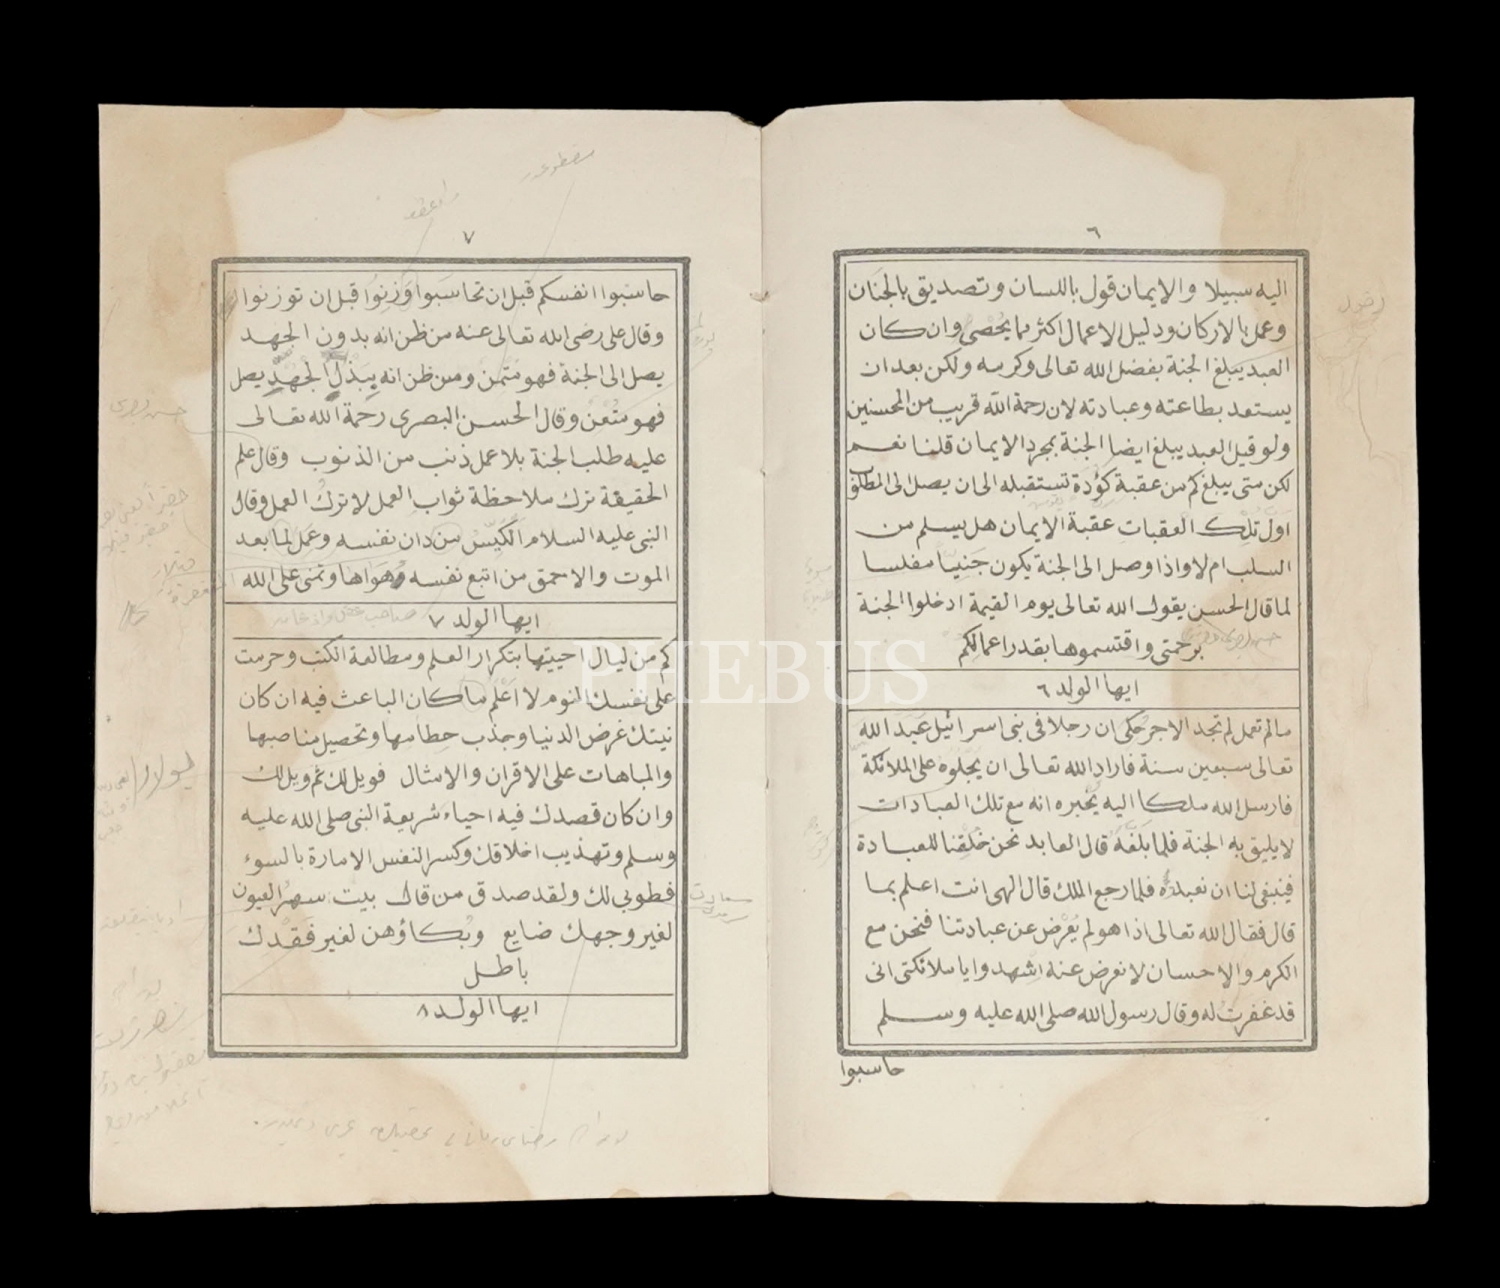 ٦
اليه سبيلا والايمان قول باللسان وتصديق بالجنَان
وعمل بالاركان ودليل الاعمال اكثر مما يُحْصٰى وان كان
العبد يبلغ الجنة بفضل الله تعالى وكرمه ولكن بعد ان
يستعد بطاعته وعبادته لان رحمة الله قريب من المحسنين
ولو قيل العبد يبلغ ايضا الجنة بمجرد الايمان قلنا نعم
لكن متى يبلغ كم من عقبة كؤدة تستقبله الى ان يصل الى المطلوب
اول تلك العقبات عقبة الايمان هل يسلم من
السلب ام لا واذا وصل الى الجنة يكون جنيّا مفلسا
لما قال الحسن يقول الله تعالى يوم القيمة ادخلوا الجنة
برحمتى واقتسموها بقدر اعمالكم
ايها الولد ٦
مالم تعمل لم تجد الاجر حُكى ان رجلا فى بنى اسرائيل عَبَدَ الله
تعالى سبعين سنة فاراد الله تعالى ان يجلوه على الملائكة
فارسل الله ملكا اليه يخبره انه مع تلك العبادات
لا يليق به الجنة فلما بلغه قال العابد نحن خُلِقنا للعبادة
فينبغى لنا ان نعبده فلما رجع الملك قال الهى انت اعلم بما
قال فقال الله تعالى اذا هو لم يُعْرِض عن عبادتنا فنحن مع
الكرم والاحسان لا نعرض عنه اشهدوا يا ملائكتى انى
قد غفرت له وقال رسول الله صلى الله عليه وسلم
حاسبوا
٧
حاسبوا انفسكم قبل ان تحاسَبوا وَزِنوُا قبل ان توزنوا
وقال على رضى الله تعالى عنه من ظن انه بدون الجهد
يصل الى الجنة فهو متمنّ ومن ظن انه يبذل الجهد يصل
فهو متعنّ وقال الحسن البصرى رحمة الله تعالى
عليه طلب الجنة بلا عمل ذنب من الذنوب وقال علم
الحقيقة ترك ملاحظة ثواب العمل لا تركُ العمل وقال
النبى عليه السلام الكَيّسُ من دان نفسه وعَمل لما بعد
الموت والاحمق من اتبع نفسه وهَواها وتمنى على الله
ايها الولد ٧
كم من ليال احييتها بتكرار العلم ومطالعة الكتب وحرمت
على نفسك النوم لا اَعْلم ما كان الباعث فيه ان كان
نيتك غرض الدنيا وجذب حطامها وتحصيل مناصبها
والمباهات على الاقران والامثال فويل لك ثم ويل لك
وان كان قصدك فيه احياء شريعة النبى صلى الله عليه
وسلم وتهذيب اخلاقك وكسر النفس الامارة بالسوء
فطوبى لك ولقد صدق من قال بيت سهرُ العيون
لغير وجهك ضايع وبكاؤهن لغير فقدك
باطل
ايها الولد ٨
PHEBUS